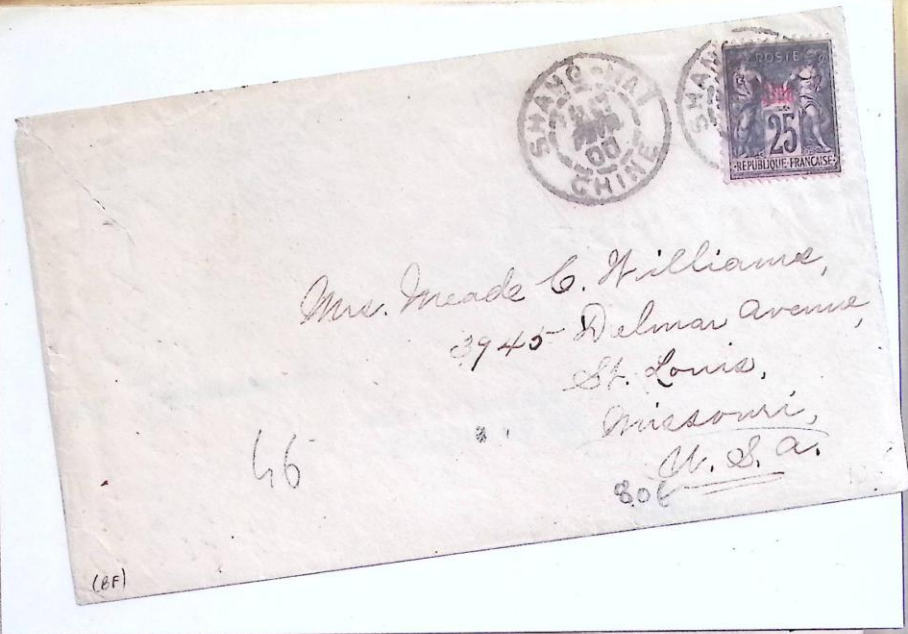 SHANG-HAI
00
CHINE
SHANG
POSTES
Chine
25
REPUBLIQUE FRANCAISE
Mrs. Meade C. Williams,
3945 Delmar Avenue,
St. Louis,
Missouri,
U. S. A.
46
80€
(BF)